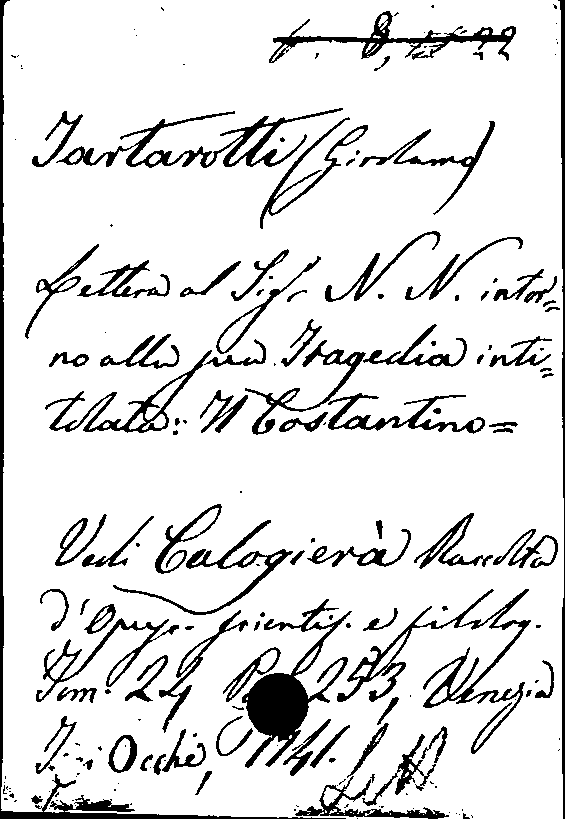 Tartarotti (Girolamo)
Lettera al Sigr N. N. intor=
no alla sua Tragedia inti=
tolata: Il Costantino=
Vedi Calogierà Raccolta
d'Opusc. scientif. e filolog.
Tom. 24, 253, Venezia
Occhi, 1741.
Lett